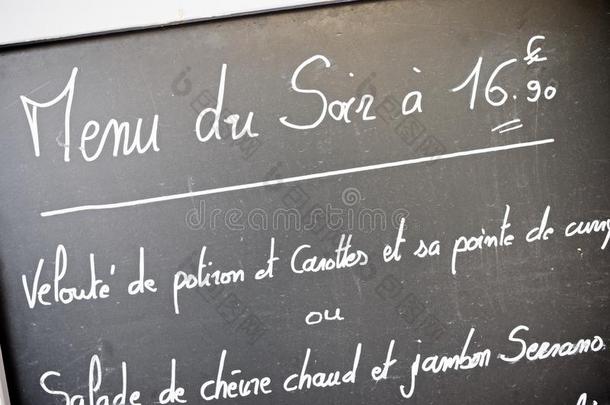 Menu du Soir à 16.€90
Velouté de potiron et Carottes et sa pointe de
ou
Salade de chèvre chaud et jambon Serrano